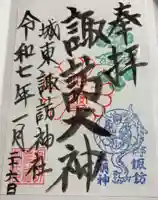 奉拝
諏訪大神
城東八諏訪神社
令和七年一月二十六日
諏訪